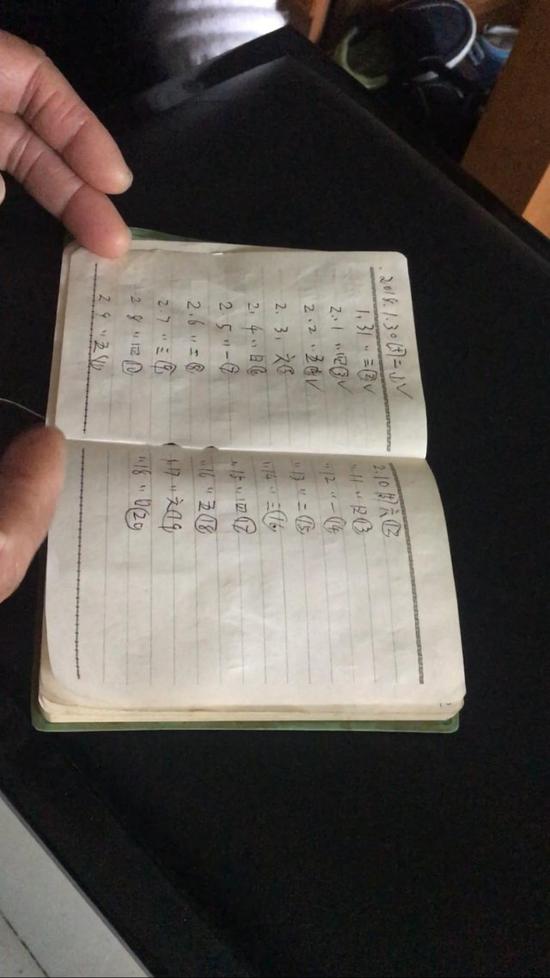 2018.1.30周二①√
1.31〃三②√
2.1〃四③√
2.2〃五④√
2.3〃六⑤
2.4〃日⑥
2.5〃一⑦
2.6〃二⑧
2.7〃三⑨
2.8〃四⑩
2.9〃五⑪
2.10周六⑫
〃11〃日⑬
〃12〃一⑭
〃13〃二⑮
〃14〃三⑯
〃15〃四⑰
〃16〃五⑱
〃17〃六⑲
〃18〃日⑳